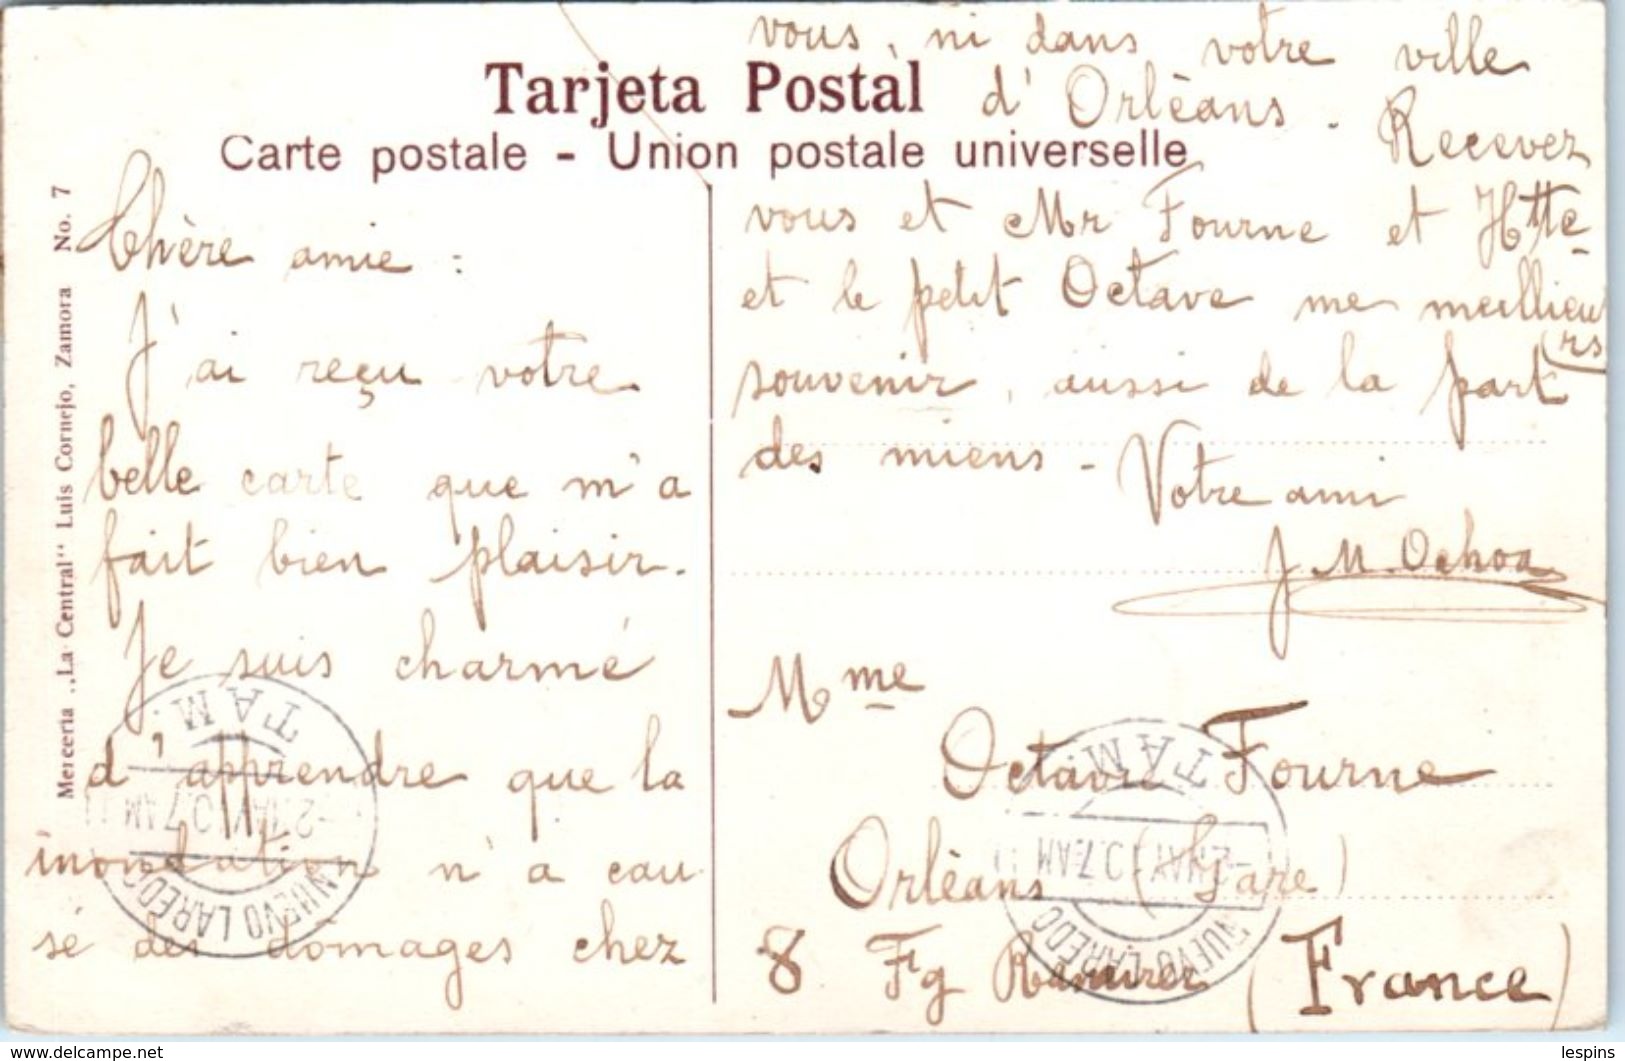 Tarjeta Postal
Carte postale - Union postale universelle
Merceria „La Central“ Luis Cornejo, Zamora No. 7
Chère amie :
J'ai reçu votre
belle carte que m'a
fait bien plaisir.
Je suis charmé
d'apprendre que la
inondation n'a cau
sé des domages chez
vous, ni dans votre ville
d'Orlèans. Recevez
vous et Mr Fourne et Htte
et le petit Octave me meillieu
rs
souvenir, aussi de la part
des miens - Votre ami
J. M. Ochoa
Mme
Octave Fourne
Orlèans (Gare)
8 Fg Bannier (France)
NUEVO LAREDO
TAM.
-2 MAY 10 7 AM
NUEVO LAREDO
TAM.
-2 MAY 10 7 AM
lespins
www.delcampe.net